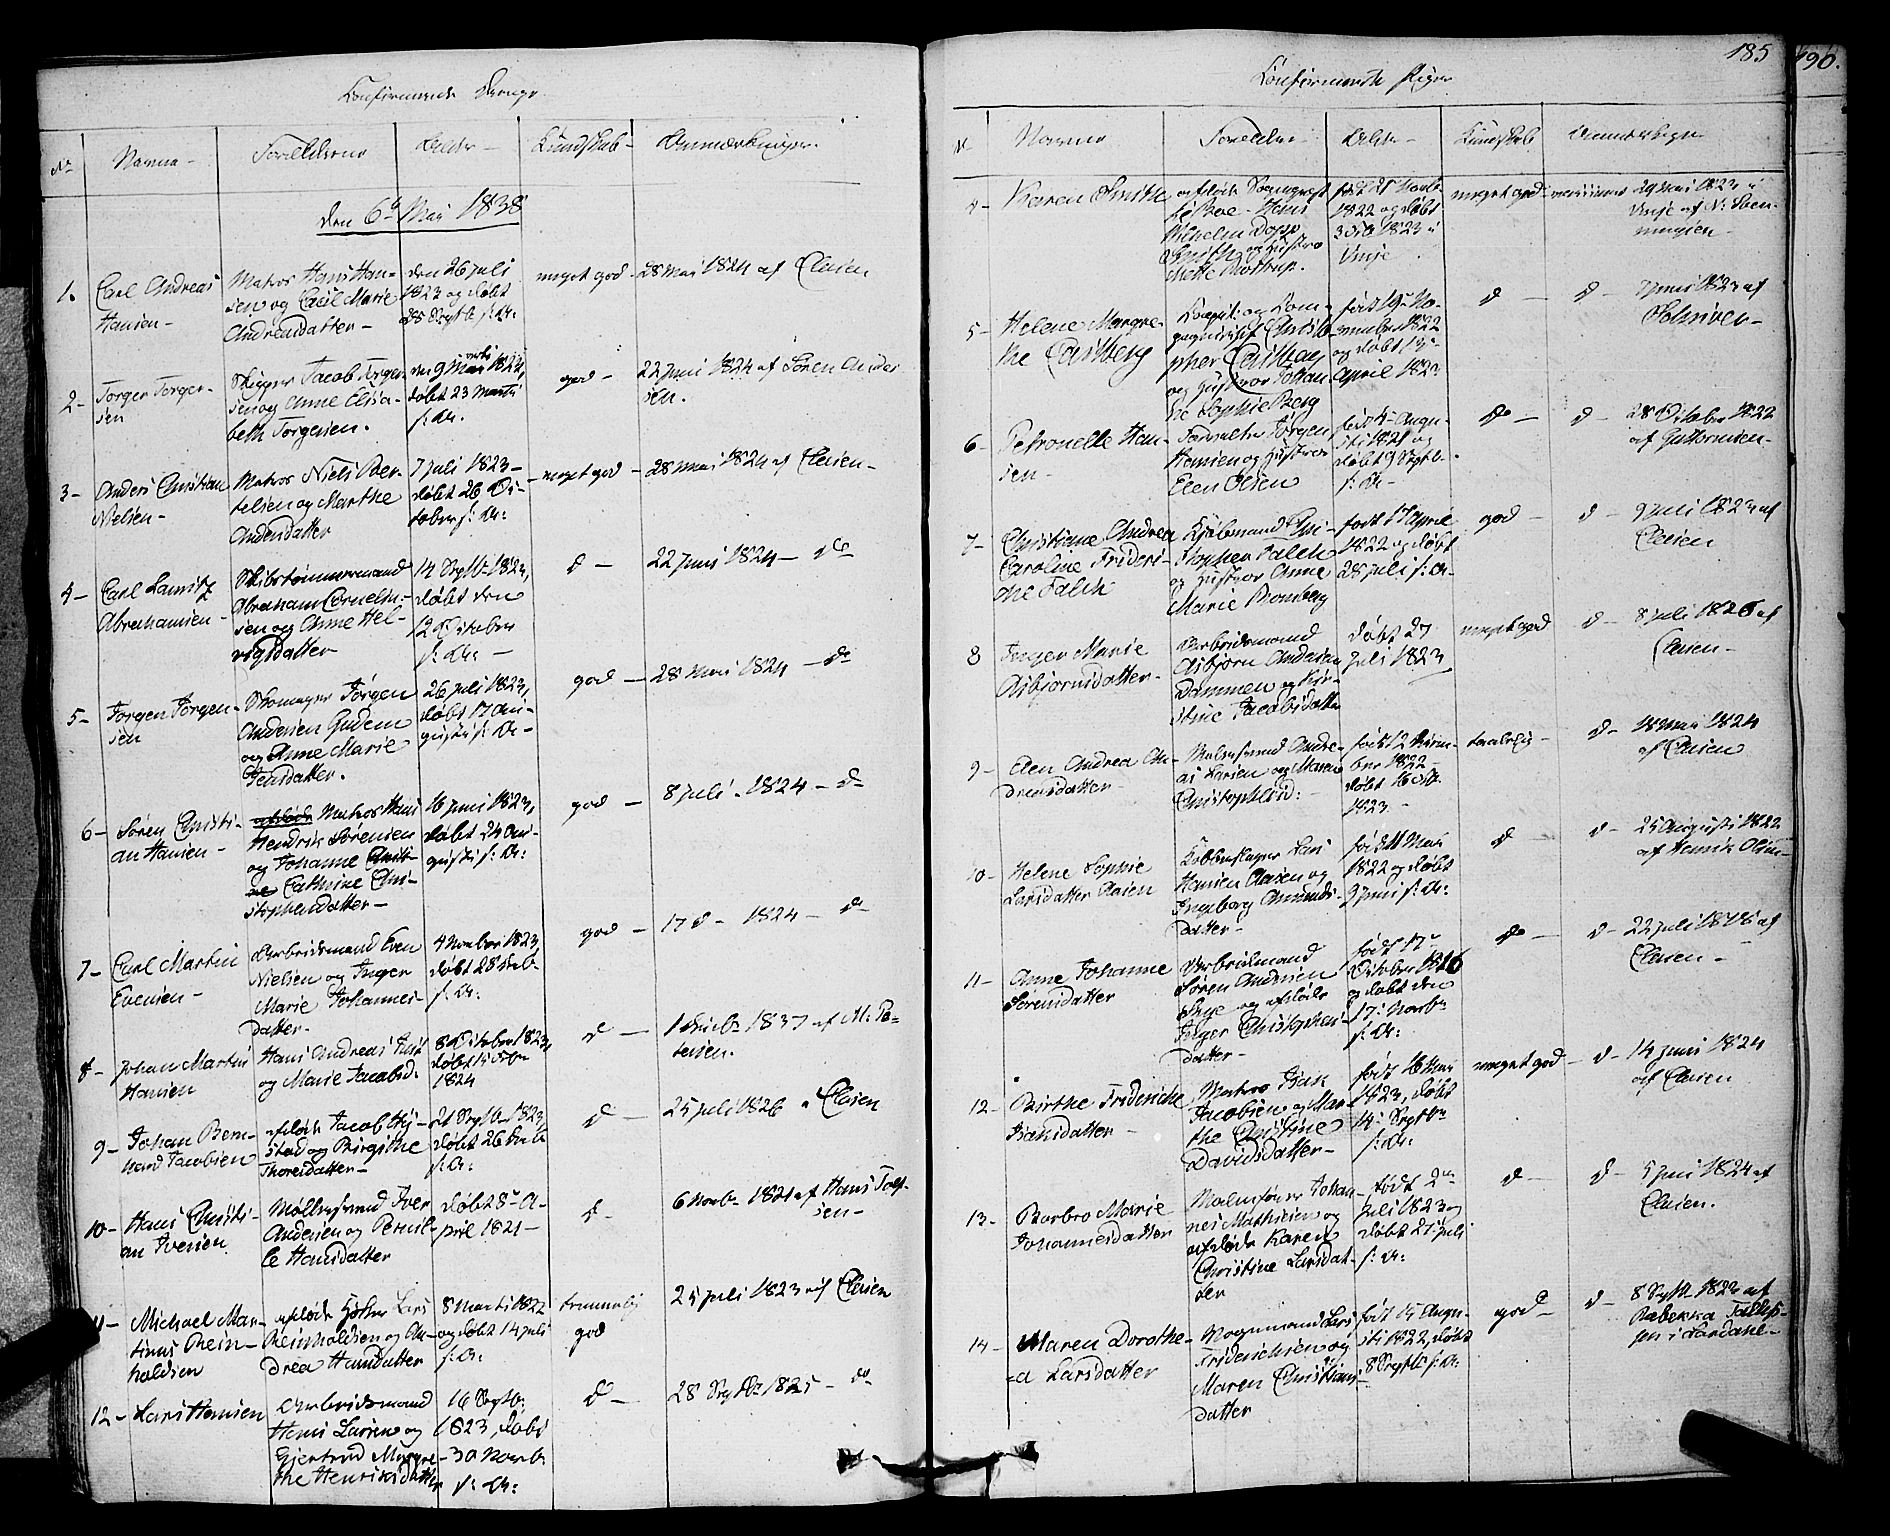 Confirmerede Drenge
No
Navne
Forældrene
Alder
Kundskab
Anmærkninger
den 6te Mai 1838
1.
Carl Andreas
Hansen
Matros Hans Han-
sen og Cecil Marie
Andreasdatter
den 26 juli
1823 og døbt
28 Septb s: A:
meget god
28 Mai 1824 af Clasen
2
Torger Torger-
sen
Skipper Jacob Torger-
sen og Anne Elisa-
beth Torgersen.
døbt 23 Martii
s: A:
god
22 Juni 1824 af Søren Ander
sen.
3
Anders Christian
Nielsen
Matros Niels Ber-
telsen og Marthe
Andersdatter
7 juli 1823
døbt 26 Oc-
tober s: A:
meget god
28 Mai 1824 af Clasen
4
Carl Lauritz
Abrahamsen
Skibstømmermand
Abraham Corneliu-
sen og Anne Hel-
vigsdatter
14 Septb 1823,
døbt den
12 October
s: A:
d
22 Juni 1824 do
5
Jørgen Jørgen-
sen
Skomager Jørgen
Andersen Gudem
og Anne Marie
Jensdatter.
26 juli 1823,
døbt 17 Au-
gusti s: A:
god
28 Mai 1824 do
6
Søren Christi-
an Hansen
afdøde Matros Hans
Hendrik Sørensen
og Johanne Christi-
ne Cathrine Chri-
stophersdatter
16 Juni 1823,
døbt 24 Au-
gusti s: A:
god
8 juli 1824 do
7
Carl Martin
Evensen
Arbeidsmand Even
Nielsen og Inger
Marie Johannes-
datter
4 Novber 1823,
døbt 28 Decb
s: A:
god
17 d 1824 do
8
Johan Martin
Hansen
Hans Andreas
og Marie Jacobsd:
8 October 1823,
døbt 15 Febr
1824
d
1837 af M: Pe-
tersen.
9
Johan Bern-
hard Jacobsen
afdøde Jacob
og Birgithe
Thoresdatter
21 Septb 1823,
døbt 26 Decb
s: A:
d
25 juli 1826 Clasen
10
Hans Christi-
an Iversen
Møllersvend Iver
Andersen og Pernil-
le Hansdatter
døbt 8de A-
pril 1821
d
6 Novb 1821 af Hans
sen
11
Michael Mar-
tinus Rein-
holdsen
afdøde Lars
Reinholdsen og An-
drea Hansdatter
8 Martii 1822
og døbt 14 juli
s: A:
temmelig
god
25 juli 1823 af Clasen
12
Lars Hansen
Arbeidsmand
Hans Larsen og
Gjertrud Margre-
the Henriksdatter
16 Septb:
1823, døbt
30 Novb
s: A:
d
28 Septbr 1825 do
185
190.
Confirmerede Piger
No
Navne
Forældre
Alder
Kundskab
Anmærkninger
4
Karen Smith
afdøde Sogneprest
Hans
Wilhelm Dopp
Smith og Hustru
Mette Brostrup.
født 21 Novb
1822 og døbt
1823 i
Vinje
meget god
vaccineret
29 Mai 1823 i
Vinje af N: Svennungsen
5
Helene Margre-
the Castberg
Christo-
pher Castberg
og Hustrue Johan-
ne Sophie Berg
født 19de No-
vember 1822
og døbt
April 1823
d
d
Juni 1823 af
Schriver
6
Petronelle Han-
sen
Jørgen
Hansen og Hustrue
Elen Olsen
født 4de Augu-
sti 1821 og
døbt 9 Septb
s: A
do
d
28 October 1822
af Guttormsen
7
Christiane Andrea
Caroline Frideri-
che Falch
Kjøbmand Chri-
stopher Falch
og Hustrue Anne
Marie Blomberg
født 17 April
1822 og døbt
28 juli s: A:
god
d
9 juli 1823 af
Clasen
8
Inger Marie
Asbjørnsdatter
Arbeidsmand
Asbjørn Andersen
Dammen og Kir-
stine Jacobsdatter
Døbt 27
juli 1823
meget god
d
8 juli 1826 af
Clasen
9
Elen Andrea An-
dreasdatter
Andre-
as Larsen og Maren
Christophersd:
født 12 Novem-
ber 1822
døbt 16
1823
taalelig
d
18 Mai 1824
af Clasen
10
Helene Sophie
Larsdatter Clasen
Kobberslager Lars
Hansen Clasen og
Ingeborg Amunds-
datter
født 11 Mai
1822 og døbt
9 Juni s: A:
d
d
25 Augusti 1822
af Henrik Olsen
11
Anne Johanne
Sørensdatter
Arbeidsmand
Søren Andersen
Skye og afdøde
Inger Christophers-
datter
født 17de
October 1816
og døbt den
17: Novbr
s: A:
do
d
22 juli 1818 af
Clasen
12
Birthe Friderikke
Isaksdatter
Matros Isak
Jacobsen og Mar-
the Christine
Davidsdatter
født 16 Mai
1823, døbt
14: Septbr
s: A:
meget god
d
14 Juni 1824
af Clasen
13
Barbro Marie
Johannesdatter
Johan-
nes Mathisen og
afdøde Karen
Christine Larsdat-
ter
født 2den
juli 1823 og
døbt 27 juli
s: A:
d
d
5 Juni 1824 af
Clasen.
14
Maren Dorothe-
a Larsdatter
Vognmand Lars
Friderichsen og
Maren Christians-
datter
født 15 Augu-
sti 1822, døbt
8 Septb s: A:
god
d
8 Septb 1823 af
Rebekka
i Laardahl